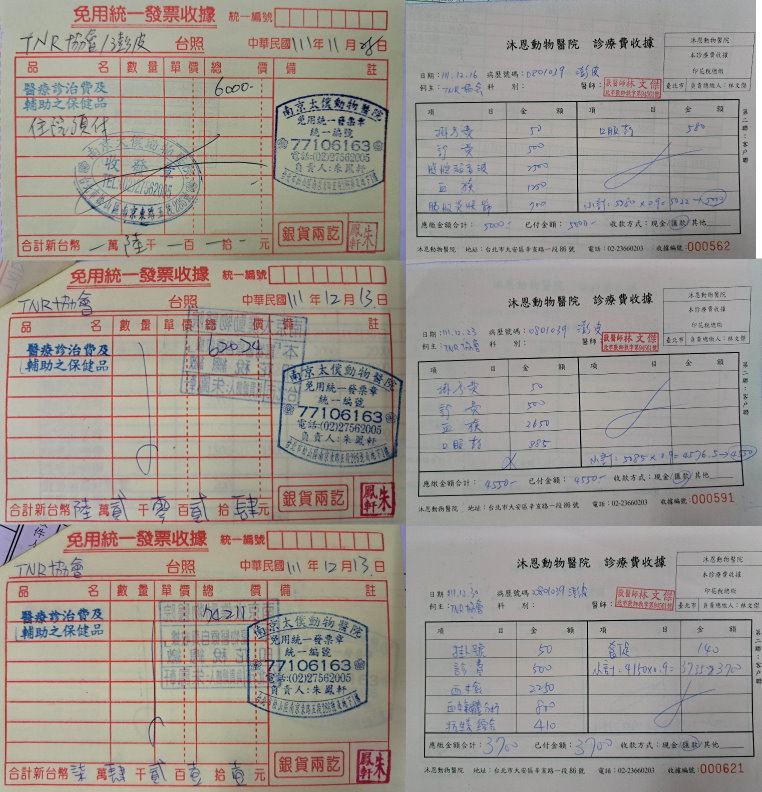 免用統一發票收據 統一編號
TNR協會/澎皮 台照 中華民國111年11月28日
品名 數量 單價 總價 備註
醫療診治費及 6000-
輔助之保健品
住院預付
南京太僕動物醫院
免用統一發票章
統一編號
77106163
電話:(02)27562005
南京太僕動物
收發章
TEL:27562005
合計新台幣 萬陸千 百 拾 元
銀貨兩訖
朱鳳軒
免用統一發票收據 統一編號
TNR協會 台照 中華民國111年12月13日
品名 數量 單價 總價 備註
醫療診治費及 62024
輔助之保健品
南京太僕動物醫院
免用統一發票章
統一編號
77106163
電話:(02)27562005
負責人:朱鳳軒
合計新台幣陸萬貳千零百貳拾肆元
銀貨兩訖
朱鳳軒
免用統一發票收據 統一編號
TNR協會 台照 中華民國111年12月13日
品名 數量 單價 總價 備註
醫療診治費及 74211
輔助之保健品
南京太僕動物醫院
免用統一發票章
統一編號
77106163
電話:(02)27562005
負責人:朱鳳軒
合計新台幣柒萬肆千貳百壹拾壹元
銀貨兩訖
朱鳳軒
沐恩動物醫院 診療費收據
沐恩動物醫院
本診療費收據
印花稅總繳
臺北市 負責總繳人:林文傑
日期:111.12.16 病歷號碼:0801039 澎皮
飼主:TNR協會 科別: 醫師:獸醫師林文傑
項目 金額 項目 金額
掛號費 50 口服藥 580
診費 500
腹腔超音波 2500
血檢 1250
700 小計:5580×0.9=5022→5000
應繳金額合計:5000- 已付金額:5000- 收款方式:現金/匯款/其他
沐恩動物醫院 地址:台北市大安區辛亥路一段86號 電話:02-23660203 收據編號:000562
第二聯:客戶聯
沐恩動物醫院 診療費收據
沐恩動物醫院
本診療費收據
印花稅總繳
臺北市 負責總繳人:林文傑
日期:111.12.23 病歷號碼:0801039 澎皮
飼主:TNR協會 科別: 醫師:獸醫師林文傑
項目 金額 項目 金額
掛號費 50
診費 500
血檢 2650
口服藥 1885
小計:5085×0.9=4576.5→4550
應繳金額合計:4550- 已付金額:4550- 收款方式:現金/匯款/其他
沐恩動物醫院 地址:台北市大安區辛亥路一段86號 電話:02-23660203 收據編號:000591
第二聯:客戶聯
沐恩動物醫院 診療費收據
沐恩動物醫院
本診療費收據
印花稅總繳
臺北市 負責總繳人:林文傑
日期:111.12.30 病歷號碼:0801039 澎皮
飼主:TNR協會 科別: 醫師:獸醫師林文傑
項目 金額 項目 金額
掛號 50 140
診費 500 小計:4150×0.9=3735→3700
2250
800
410
應繳金額合計:3700 已付金額:3700 收款方式:現金/匯款/其他
沐恩動物醫院 地址:台北市大安區辛亥路一段86號 電話:02-23660203 收據編號:000621
第二聯:客戶聯